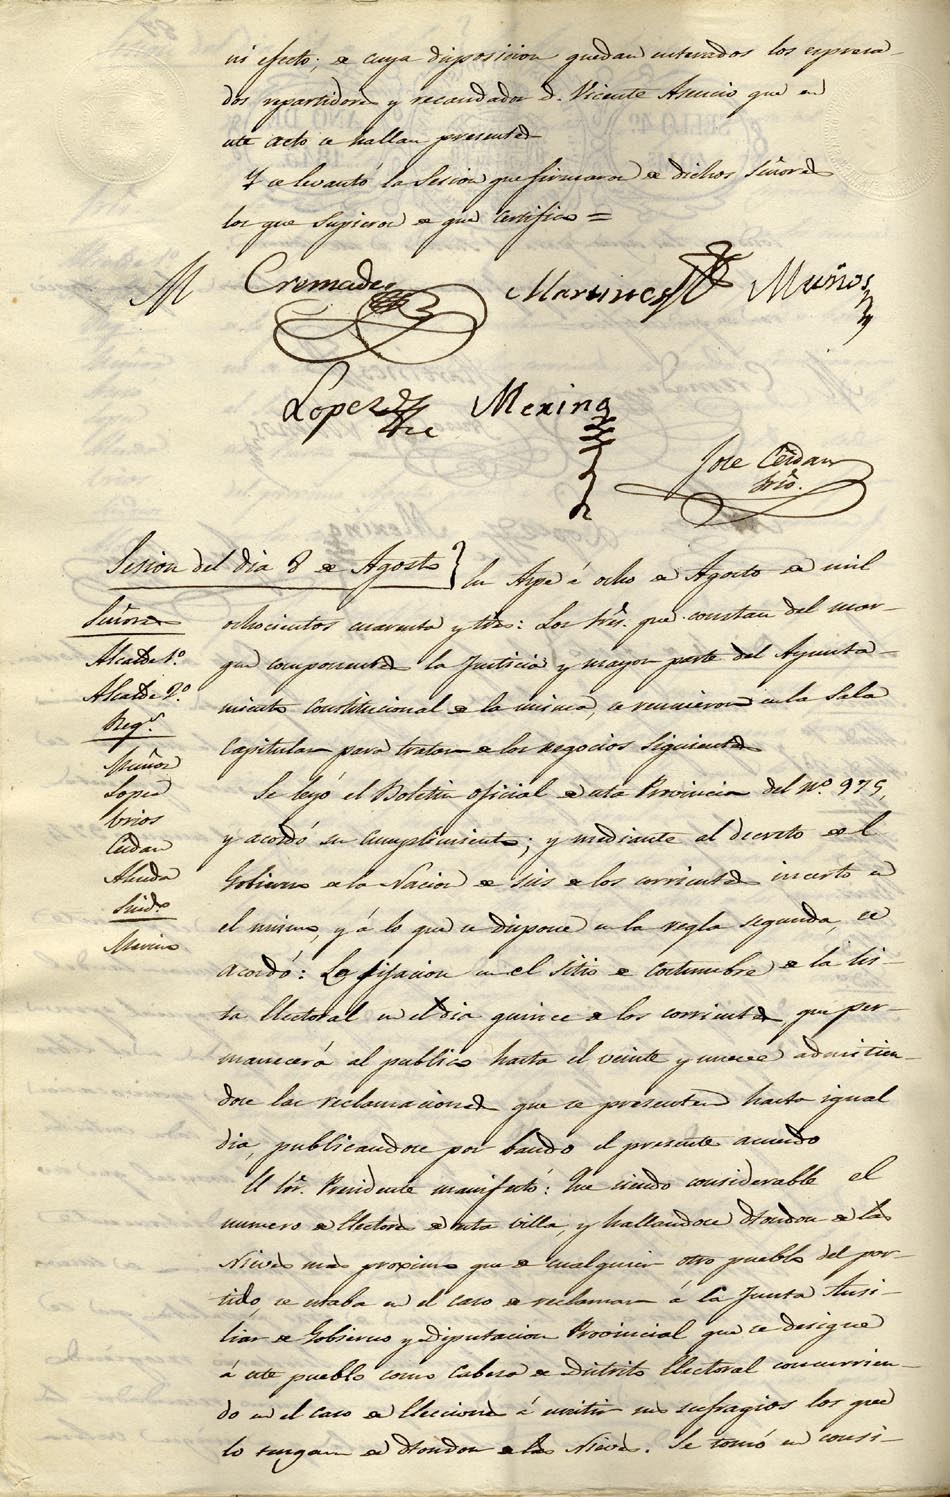 ni efecto; de cuya disposicion quedan enterados los expresa-
dos repartidores y recaudador D. Vicente Asencio que en
este acto se hallan presentes
Y se levantó la Sesion que firmaron de dichos Señores
los que supieron de que certifico =
M Cremades Martines Muños
Lopez Mexina
Jose Cerdan
Srio.
Sesion del dia 8 de Agosto
Señores
Alcalde 1º.
Alcalde 2º.
Regs.
Muñoz
Lopez
Brios
Cerdan
Alzeda
Sindo.
Merino
En Aspe á ocho de Agosto de mil
ochocientos cuarenta y tres: Los Sres. que constan del mar-
gen componentes la Justicia y mayor parte del Ayunta-
miento Constitucional de la misma, se reunieron en la Sala
Capitular para tratar de los negocios siguientes
Se leyó el Boletin oficial de esta Provincia del Nº. 975,
y acordó su cumplimiento; y mediante al decreto del
Gobierno de la Nacion de seis de los corrientes incerto en
el mismo, y á lo que se dispone en la regla segunda, se
acordó: La fijacion en el sitio de costumbre de la lis-
ta Electoral en el dia quince de los corrientes, que per-
manecerá al publico hasta el veinte y nueve admitien-
dose las reclamaciones que se presenten hasta igual
dia, publicandose por bando el presente acuerdo
El Sor. Presidente manifestó: Que siendo considerable el
numero de Electores de esta villa, y hallandose Hondon de las
Nieves mas proximo que de cualquier otro pueblo del par-
tido, se estaba en el caso de reclamar á la Junta Ausi-
liar de Gobierno y Diputacion Provincial que se designe
á este pueblo como Cabesa de Distrito Electoral concurrien-
do en el caso de Elecciones á emitir sus sufragios los que
lo tengan de Hondon de las Nieves. Se tomó en consi-